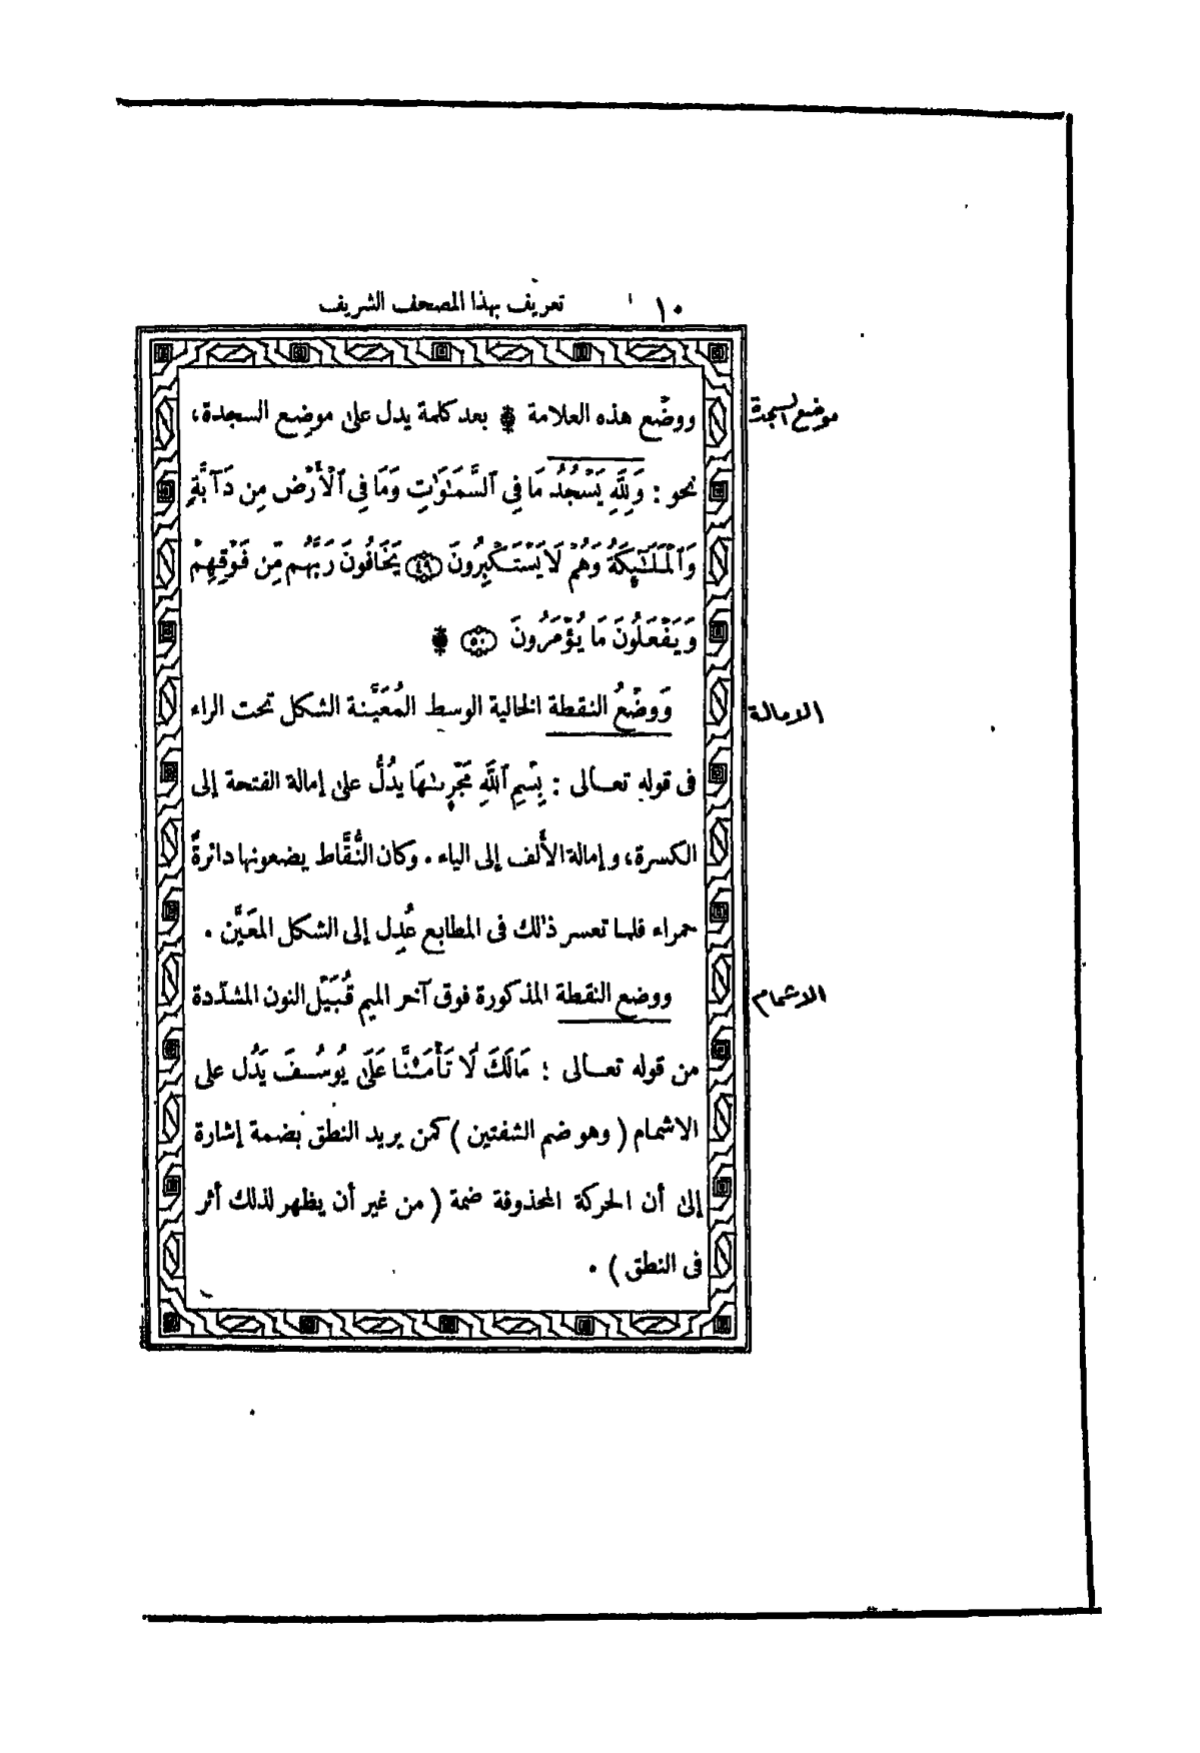 ١٠ تعريف بهذا المصحف الشريف
موضع السجدة
ووضْع هذه العلامة ۩ بعد كلمة يدل على موضِع السجدة،
نحو : وَلِلَّهِ يَسْجُدُ مَا فِي ٱلسَّمَٰوَٰتِ وَمَا فِي ٱلْأَرْضِ مِن دَآبَّةٍ
وَٱلْمَلَٰٓئِكَةُ وَهُمْ لَا يَسْتَكْبِرُونَ ۝٤٩ يَخَافُونَ رَبَّهُم مِّن فَوْقِهِمْ
وَيَفْعَلُونَ مَا يُؤْمَرُونَ ۝٥٠ ۩
الامالة
وَوضْعُ النقطة الخالية الوسط المُعَيَّنة الشكل تحت الراء
فى قوله تعـالى : بِسْمِ ٱللَّهِ مَجْر۪ىٰهَا يدُلُّ على إمالة الفتحة إلى
الكسرة، و إمالة الأَلف إلى الياء . وكان النُّقَّاط يضعونها دائرةً
حمراء فلما تعسر ذٰلك فى المطابع عُدِل إلى الشكل المعَيَّن .
الاشمام
ووضع النقطة المذكورة فوق آخر الميم قُبَيْل النون المشدّدة
من قوله تعـالى : مَالَكَ لَا تَأْمَ۫نَّا عَلَىٰ يُوسُفَ يَدُل على
الاشمام ( وهو ضم الشفتين ) كمن يريد النطق بضمة إشارة
إلى أن الحركة المحذوفة ضمة ( من غير أن يظهر لذلك أثر
فى النطق ) .